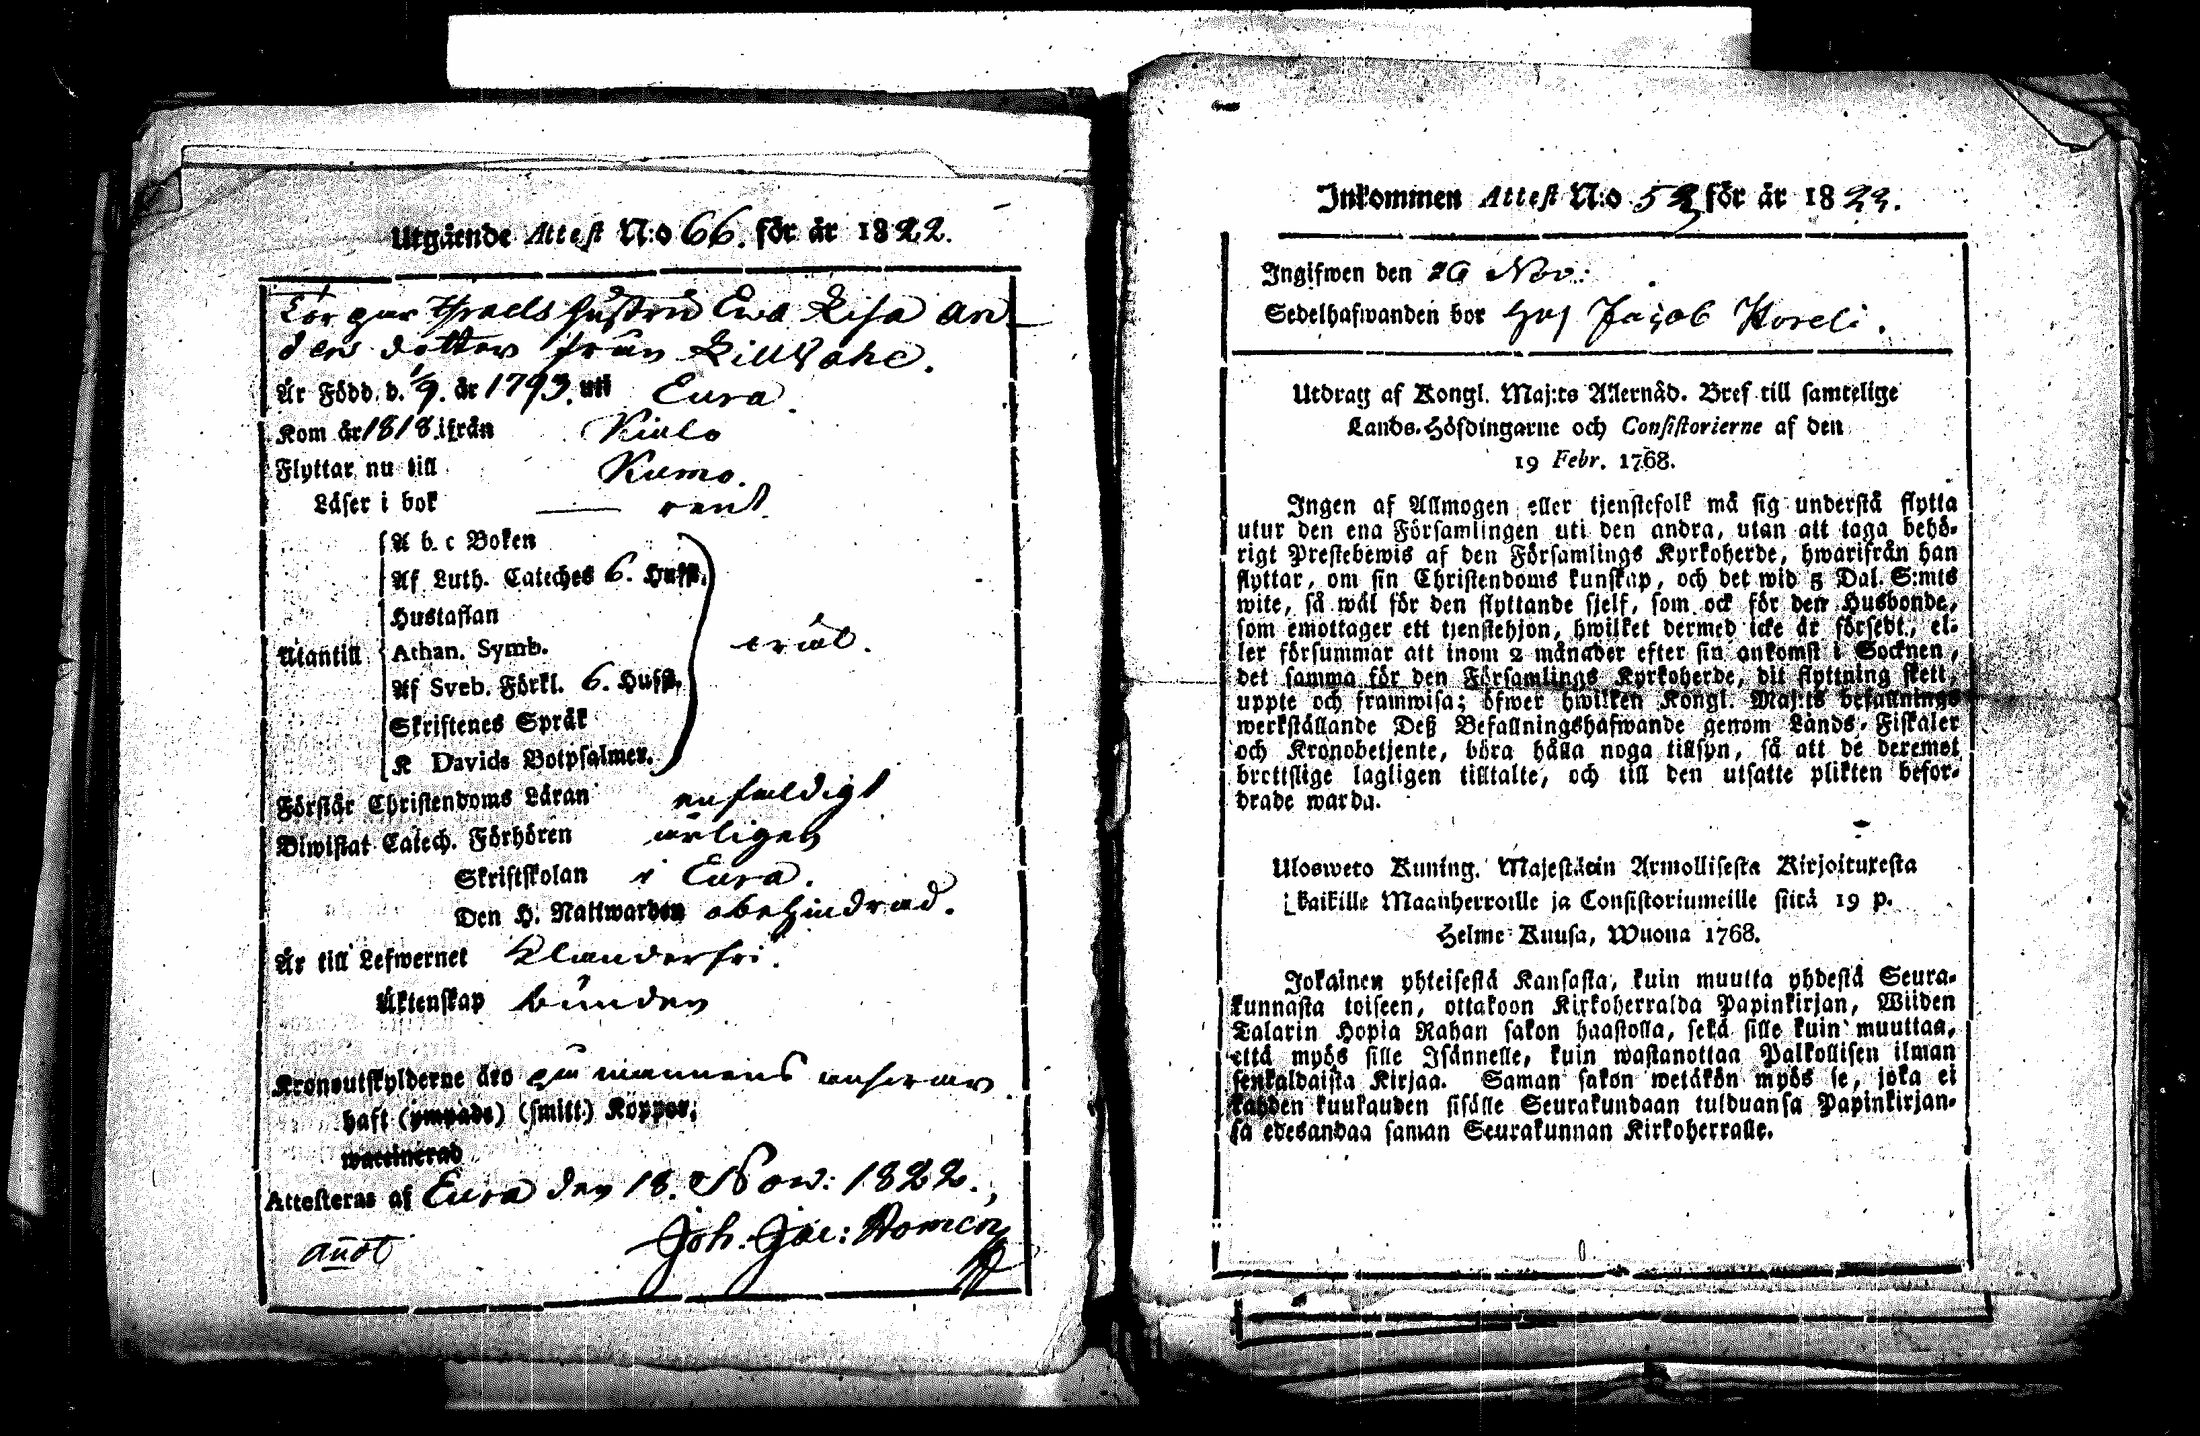 Utgående Attest N:o 66. för år 1822.
Torpar Israels hustru Eva Lisa An-
ders dotter från
Är Född d. 1/9. år 1793. uti Eura.
Kom år 1818. ifrån Kiulo
Flyttar nu till Kumo.
Läser i bok — rent
A b c Boken
Af Luth. Cateches 6. Hufst.
Hustaflan
Utantill
Athan. Symb.
Af Sveb. Förkl. 6. Hufst.
Skriftenes Språk
K Davids Botpsalmer.
Förstår Christendoms Läran enfaldigt
Biwistat Catech. Förhören årligen
Skriftskolan i Eura.
Den H. Nattwarden obehindrad.
Är till Lefwernet Klanderfri.
Äktenskap bunden
Kronoutskylderne äro på mannens ansvar.
haft (ympade) (smitt.) Koppor,
waccinerad
Attesteras af Eura den 18. Nov: 1822.,
Joh. Jac:
Inkommen Attest N:o för år 1822.
Ingifwen den 26 Nov:
Sedelhafwanden bor Hos Jacob
Utdrag af Kongl. Maj:ts Allernåd. Bref till samtelige
Lands-Höfdingarne och Consistorierne af den
19 Febr. 1768.
Ingen af Allmogen eller tjenstefolk må sig understå flytta
utur den ena Församlingen uti den andra, utan att taga behö-
rigt Prestebewis af den Församlings Kyrkoherde, hwarifrån han
flyttar, om sin Christendoms kunskap, och det wid 5 Dal. S:mts
wite, så wäl för den flyttande sjelf, som ock för den Husbonde,
som emottager ett tjenstehjon, hwilket dermed icke är försedt, el-
ler försummar att inom 2 månader efter sin ankomst i Socknen,
det samma för den Församlings Kyrkoherde, dit flyttning skett,
uppte och framwisa; öfwer hwilken Kongl. Maj:ts befallnings
werkställande Deß Befallningshafwande genom Lands-Fiskaler
och Kronobetjente, böra hålla noga tillsyn, så att de deremot
brottslige lagligen tilltalte, och till den utsatte plikten befor-
drade warda.
Ulosweto Kuning. Majestätin Armollisesta Kirjoituxesta
kaikille Maanherroille ja Consistoriumeille siitä 19 p.
Helme Kuusa, Wuona 1768.
Jokainen yhteisestä Kansasta, kuin muutta yhdestä Seura-
kunnasta toiseen, ottakoon Kirkoherralda Papinkirjan, Wiiden
Talarin Hopia Rahan sakon haastolla, sekä sille kuin muuttaa,
että myös sille Isännelle, kuin wastanottaa Palkollisen ilman
senkaldaista Kirjaa. Saman sakon wetäkön myös se, joka ei
kahden kuukauden sisälle Seurakundaan tulduansa Papinkirjan-
sa edesandaa saman Seurakunnan Kirkoherralle.